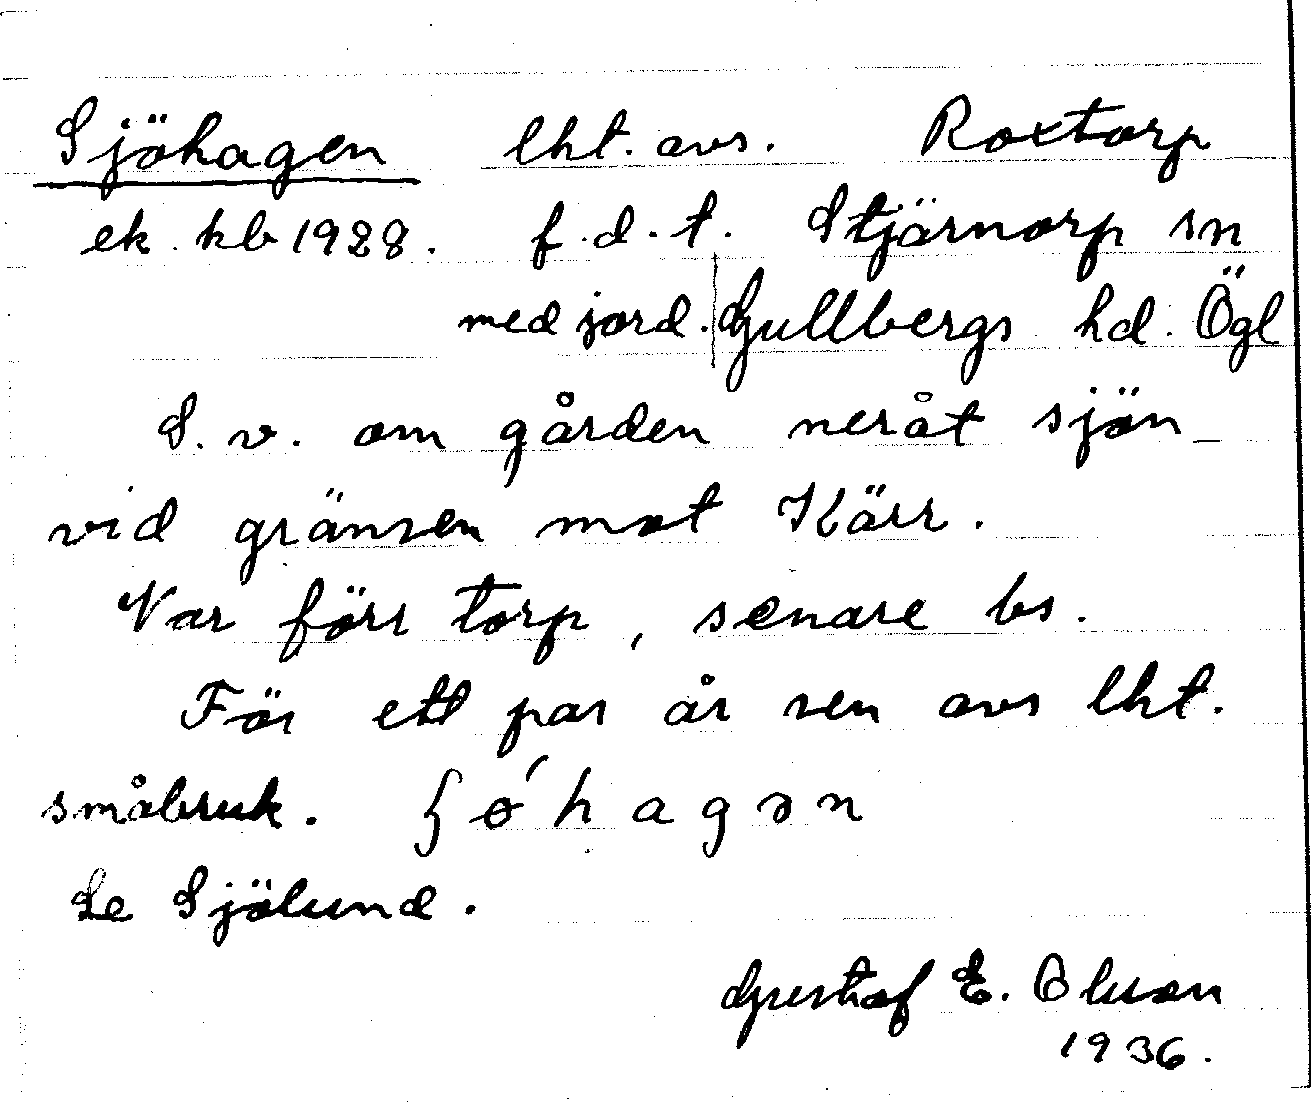 Sjöhagen lht. avs. Roxtorp
ek. kb 1928. f.d.t. Stjärnorp sn
med jord. Gullbergs hd. Ögl
S.v. om gården neråt sjön
vid gränsen mot Kärr.
Var förr torp, senare bs.
För ett par år sen avs lht.
småbruk. ʃø´hagən
Se Sjölund.
Gustaf E. Olsson
1936.